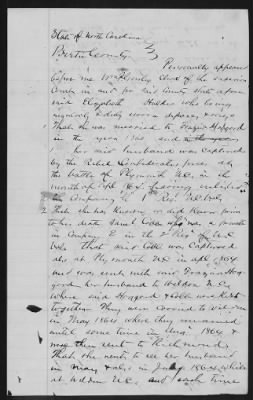 State of North Carolina
Bertie County
Personally appeared
before me Wm Gurley Clerk of the superior
Court in and for said County state afore
said Elizabeth who being
regularly & duly sworn deposes & says
That she was married to Frazier Hoggard
in the year and
her said husband was captured
by the Rebel Confederates forces at
the battle of Plymouth N.C. in the
month of Apl 1864 having enlisted
in Company Regt N.C. Vols
2 That she has known or did know prior
to his death Cobb who was a private
in Company in the 2nd Regt of N.C.
Vols that said Cobb was Captured
also at Plymouth N.C. in apl 1864
and was sent with said Frazier Hog
gard her husband to Weldon N.C.
where said Hoggard & Cobb were kept
together They were to Weldon
in May 1864 where they remained
until some time in Aug 1864
were then sent to Richmond
That she went to see her husband
in May & also in July 1864 while
at Weldon N.C. and each time